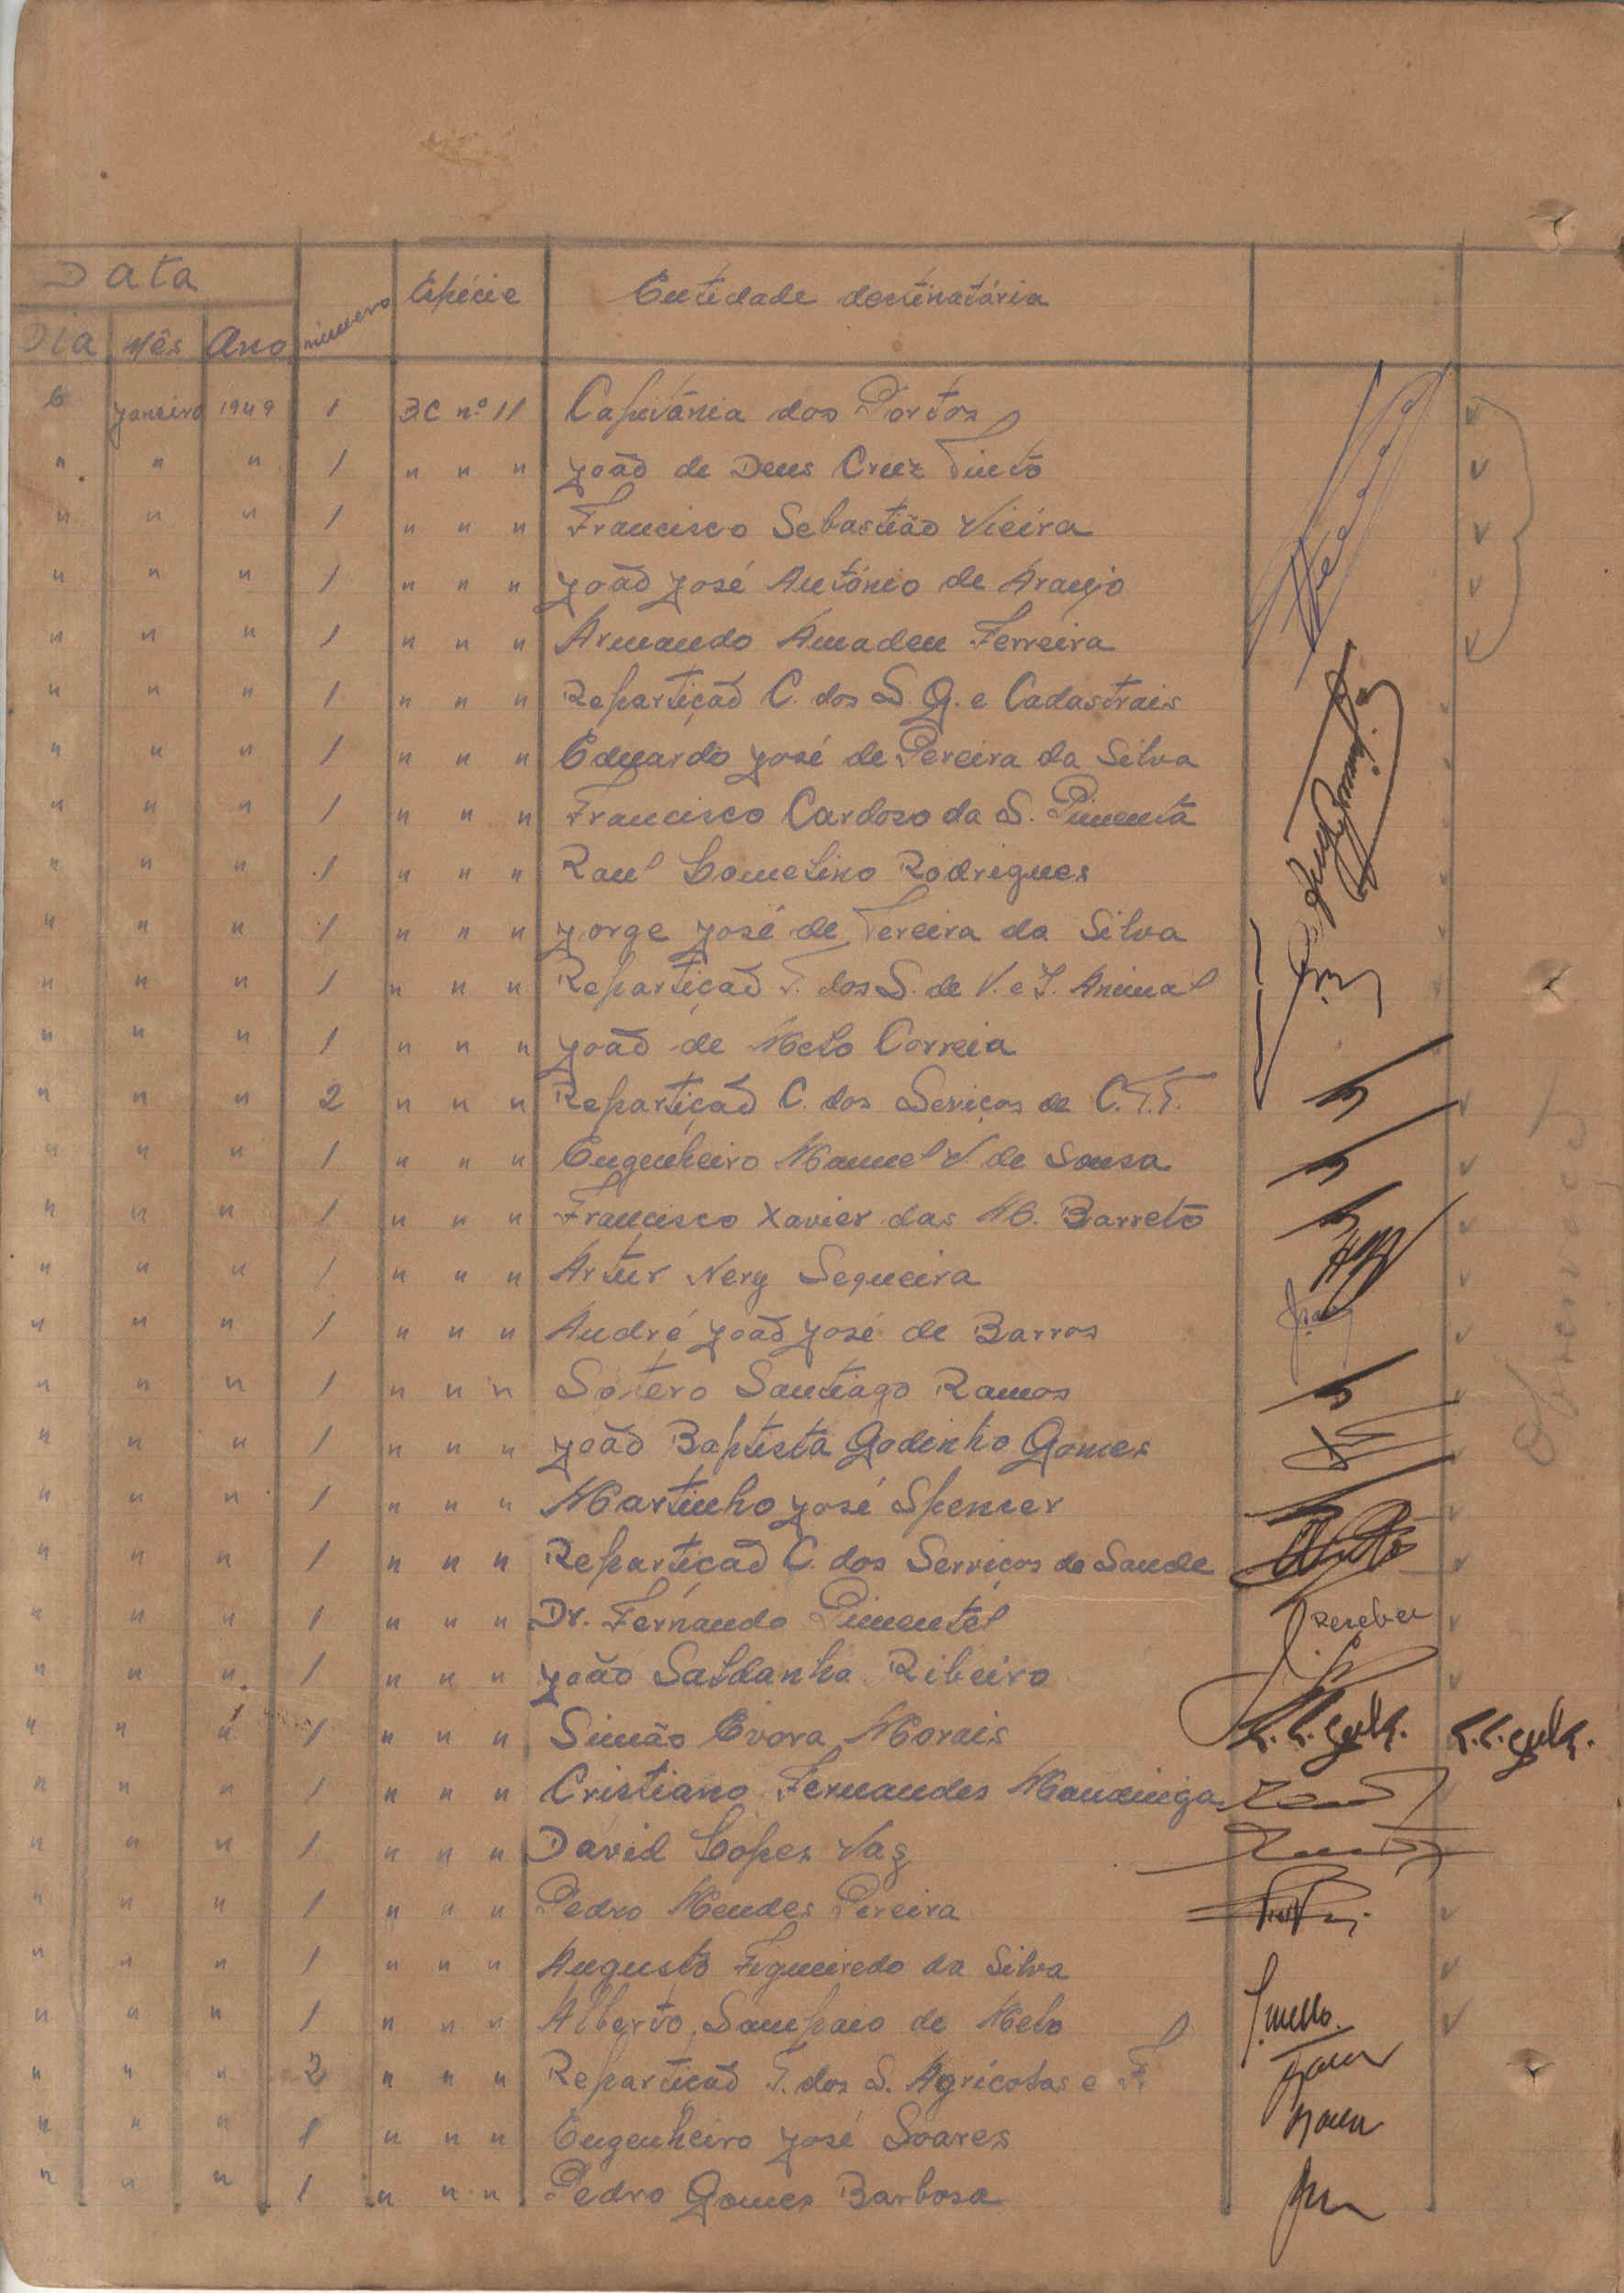 Data
número Espécie Entidade destinatária
Dia Mês Ano
6 Janeiro 1949 1 B.C nº 11 Capitánia dos Portos
" " " 1 " " " João de Deus Cruz Pinto
" " " 1 " " " Francisco Sebastião Vieira
" " " 1 " " " João José António de Araujo
" " " 1 " " " Armando Amadeu Ferreira
" " " 1 " " " Repartição C. dos S. G. e Cadastrais
" " " 1 " " " Eduardo José de Pereira da Silva
" " " 1 " " " Francisco Cardoso da S. Pimenta
" " " 1 " " " Raul Lomelino Rodrigues
" " " 1 " " " Jorge José de Pereira da Silva
" " " 1 " " " Repartição T. dos S. de V. e I. Animal
" " " 1 " " " João de Melo Correia
" " " 2 " " " Repartição C. dos Serviços de C.T.T.
" " " 1 " " " Engenheiro Manuel V. de Sousa
" " " 1 " " " Francisco Xavier das M. Barreto
" " " 1 " " " Artur Nery Sequeira
" " " 1 " " " André João José de Barros
" " " 1 " " " Sotero Santiago Ramos
" " " 1 " " " João Baptista Godinho Gomes
" " " 1 " " " Martinho José Spencer
" " " 1 " " " Repartição C. dos Serviços de Saude
" " " 1 " " " Dr. Fernando Pimentel Recebeu
" " " 1 " " " João Saldanha Ribeiro
" " " 1 " " " Simão Evora Morais
" " " 1 " " " Cristiano Fernandes Mandinga
" " " 1 " " " David Lopes Vaz
" " " 1 " " " Pedro Mendes Pereira
" " " 1 " " " Augusto Figueiredo da Silva
" " " 1 " " " Alberto Sampaio de Melo
" " " 2 " " " Repartição T. dos S. Agricolas e F.
" " " 1 " " " Engenheiro José Soares
" " " 1 " " " Pedro Gomes Barbosa